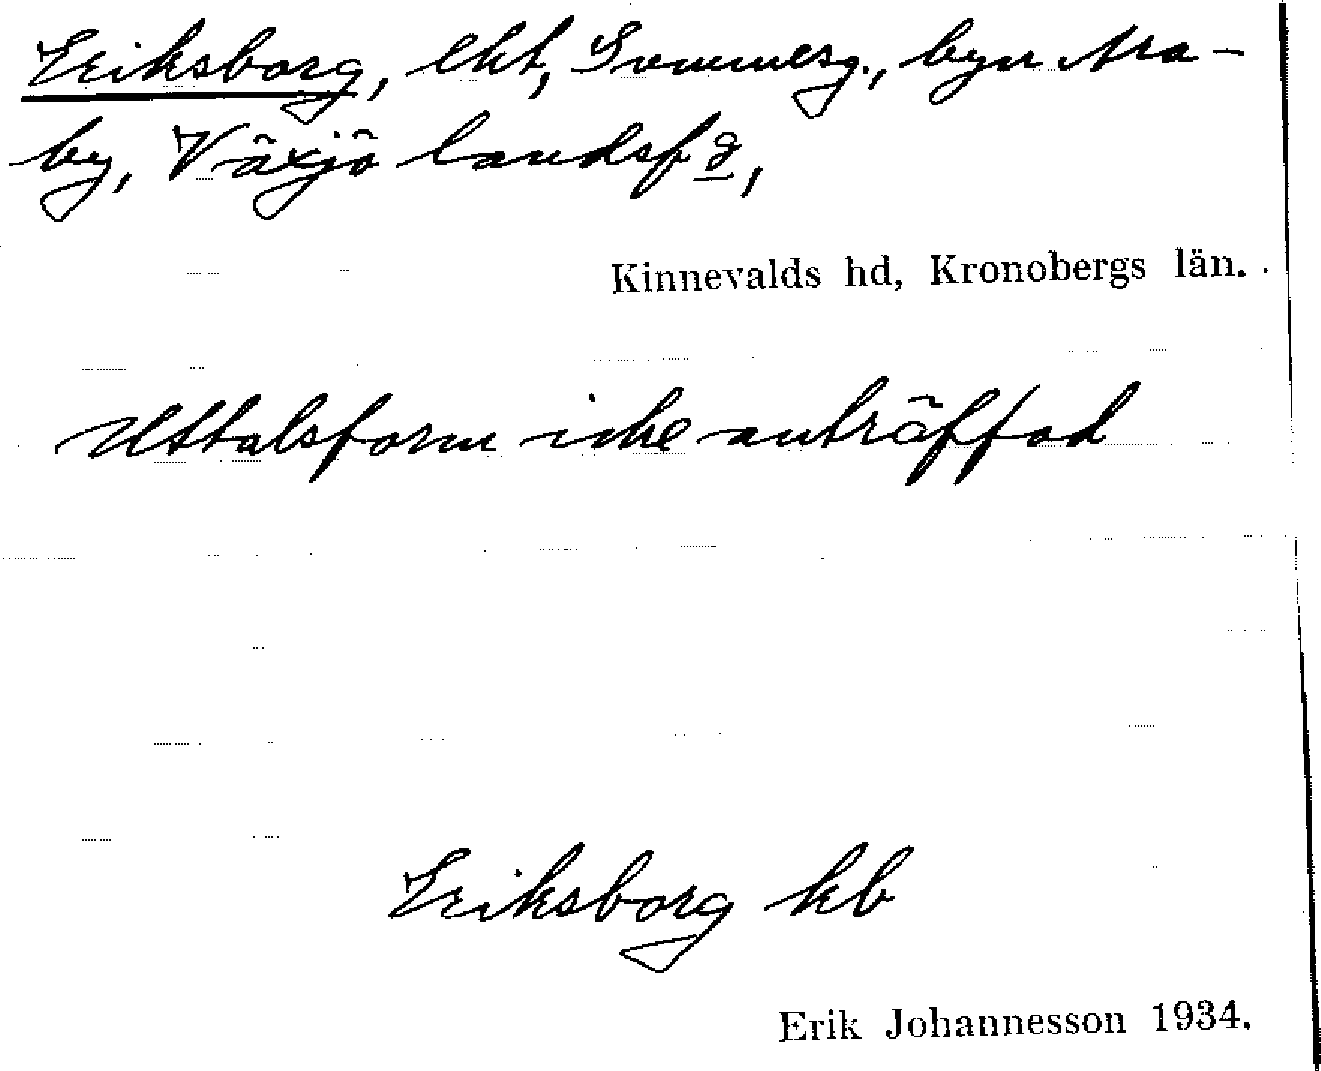 Eriksborg, lht, Sommarg., byn Ara-
by, Växjö landsf d,
Kinnevalds hd, Kronobergs län.
Uttalsform icke anträffad
Eriksborg kb
Erik Johannesson 1934.